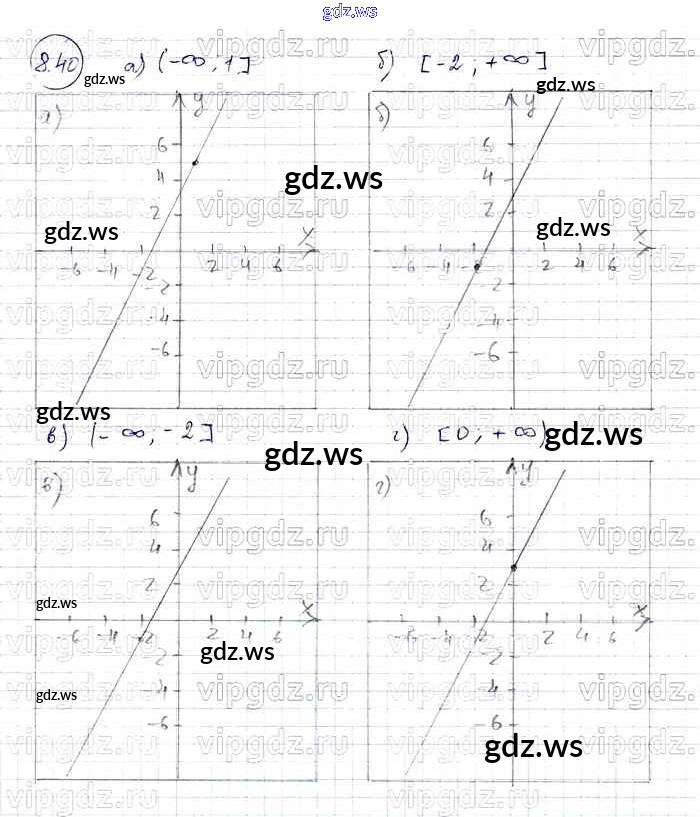 gdz.ws
8.40 а) (-∞; 1] б) [-2; +∞]
gdz.ws gdz.ws
а) y б) y
6 6
4 4
gdz.ws
2 2
gdz.ws gdz.ws
x x
-6 -4 -2 2 4 6 -6 -4 2 4 6
-2 -2
-4 -4
-6 -6
gdz.ws
в) (-∞; -2] г) [0; +∞)
gdz.ws gdz.ws
в) y г) y
6 6
4 4
2 2
gdz.ws x x
-6 -4 -2 2 4 6 -6 -4 -2 2 4 6
gdz.ws
-2 -2
gdz.ws
-4 -4
-6 -6
gdz.ws
vipgdz.ru